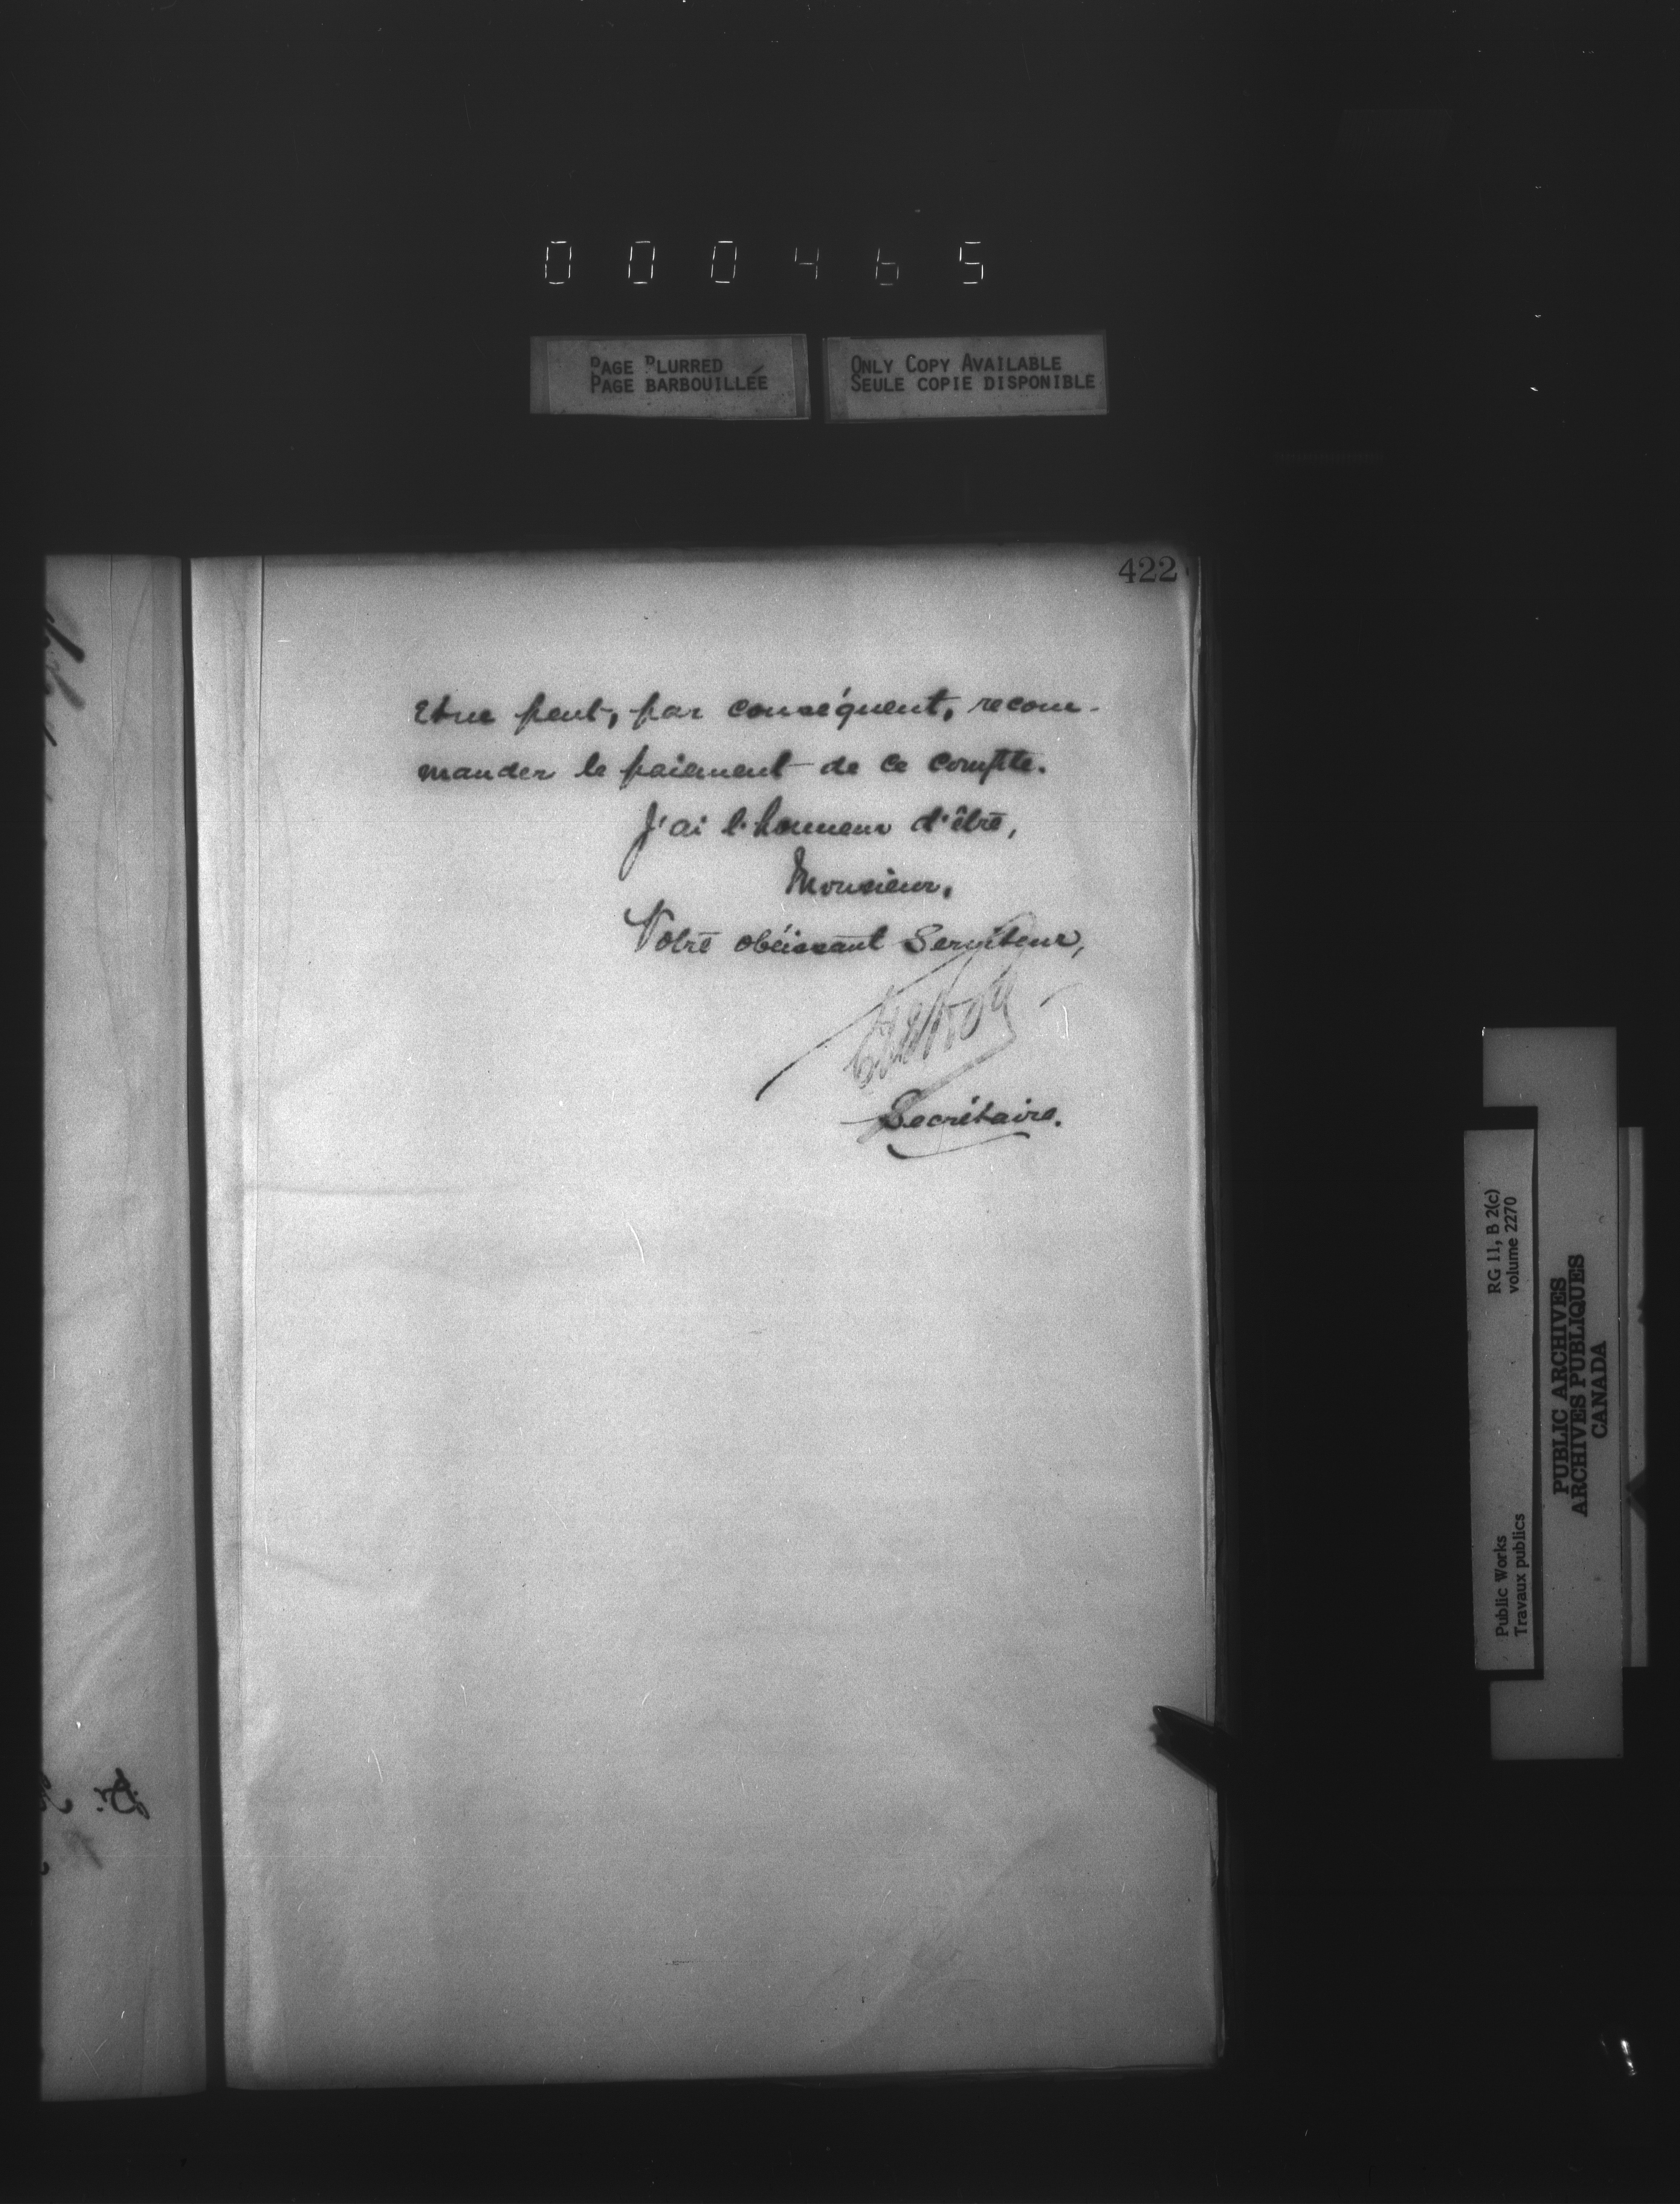 000465
PAGE BLURRED
PAGE BARBOUILLÉE
ONLY COPY AVAILABLE
SEULE COPIE DISPONIBLE
422
et ne peut, par conséquent, recom-
mander le paiement de ce compte.
J'ai l'honneur d'être,
Monsieur,
Votre obéissant Serviteur,
Secrétaire.
RG 11, B 2(c)
volume 2270
Public Works
Travaux publics
PUBLIC ARCHIVES
ARCHIVES PUBLIQUES
CANADA